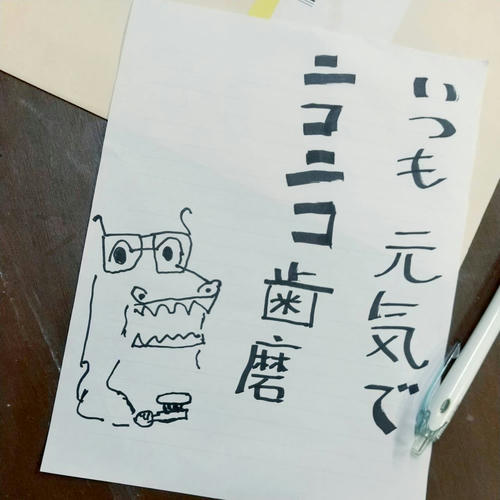 いつも元気で
ニコニコ歯磨